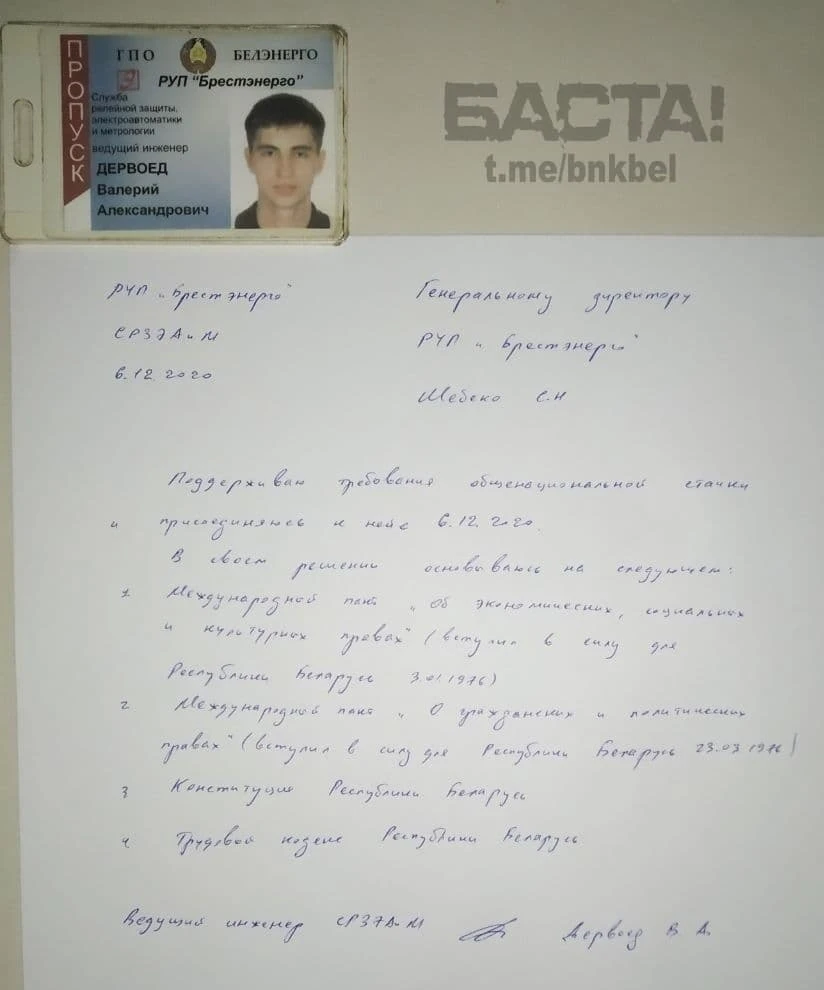 ПРОПУСК
ГПО БЕЛЭНЕРГО
РУП "Брестэнерго"
Служба
релейной защиты,
электроавтоматики
и метрологии
ведущий инженер
ДЕРВОЕД
Валерий
Александрович
БАСТА!
t.me/bnkbel
РУП „Брестэнерго"
СРЗЭАиМ
6.12.2020
Генеральному директору
РУП „Брестэнерго"
Шебеко С.Н
Поддерживаю требования общенациональной стачки
и присоединяюсь к ней с 6.12.2020.
В своем решении основываюсь на следующем:
1 Международной пакт „Об экономических, социальных
и культурных правах" (вступил в силу для
Республики Беларусь 3.01.1976)
2 Международной пакт „О гражданских и политических
правах" (вступил в силу для Республики Беларусь 23.03.1976)
3 Конституция Республики Беларусь
4 Трудовой кодекс Республики Беларусь
Ведущий инженер СРЗЭАиМ Дервоед В. А.